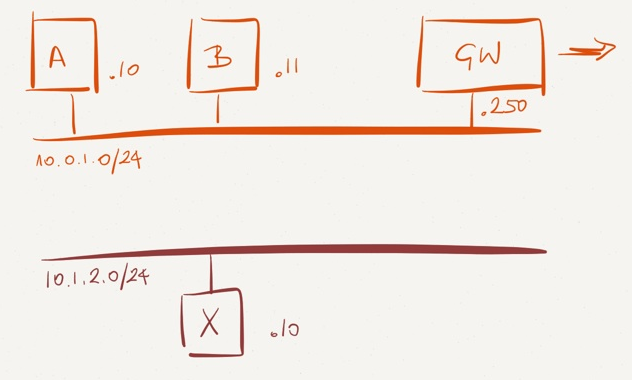 A
.10
B
.11
GW
.250
10.0.1.0/24
10.1.2.0/24
X
.10